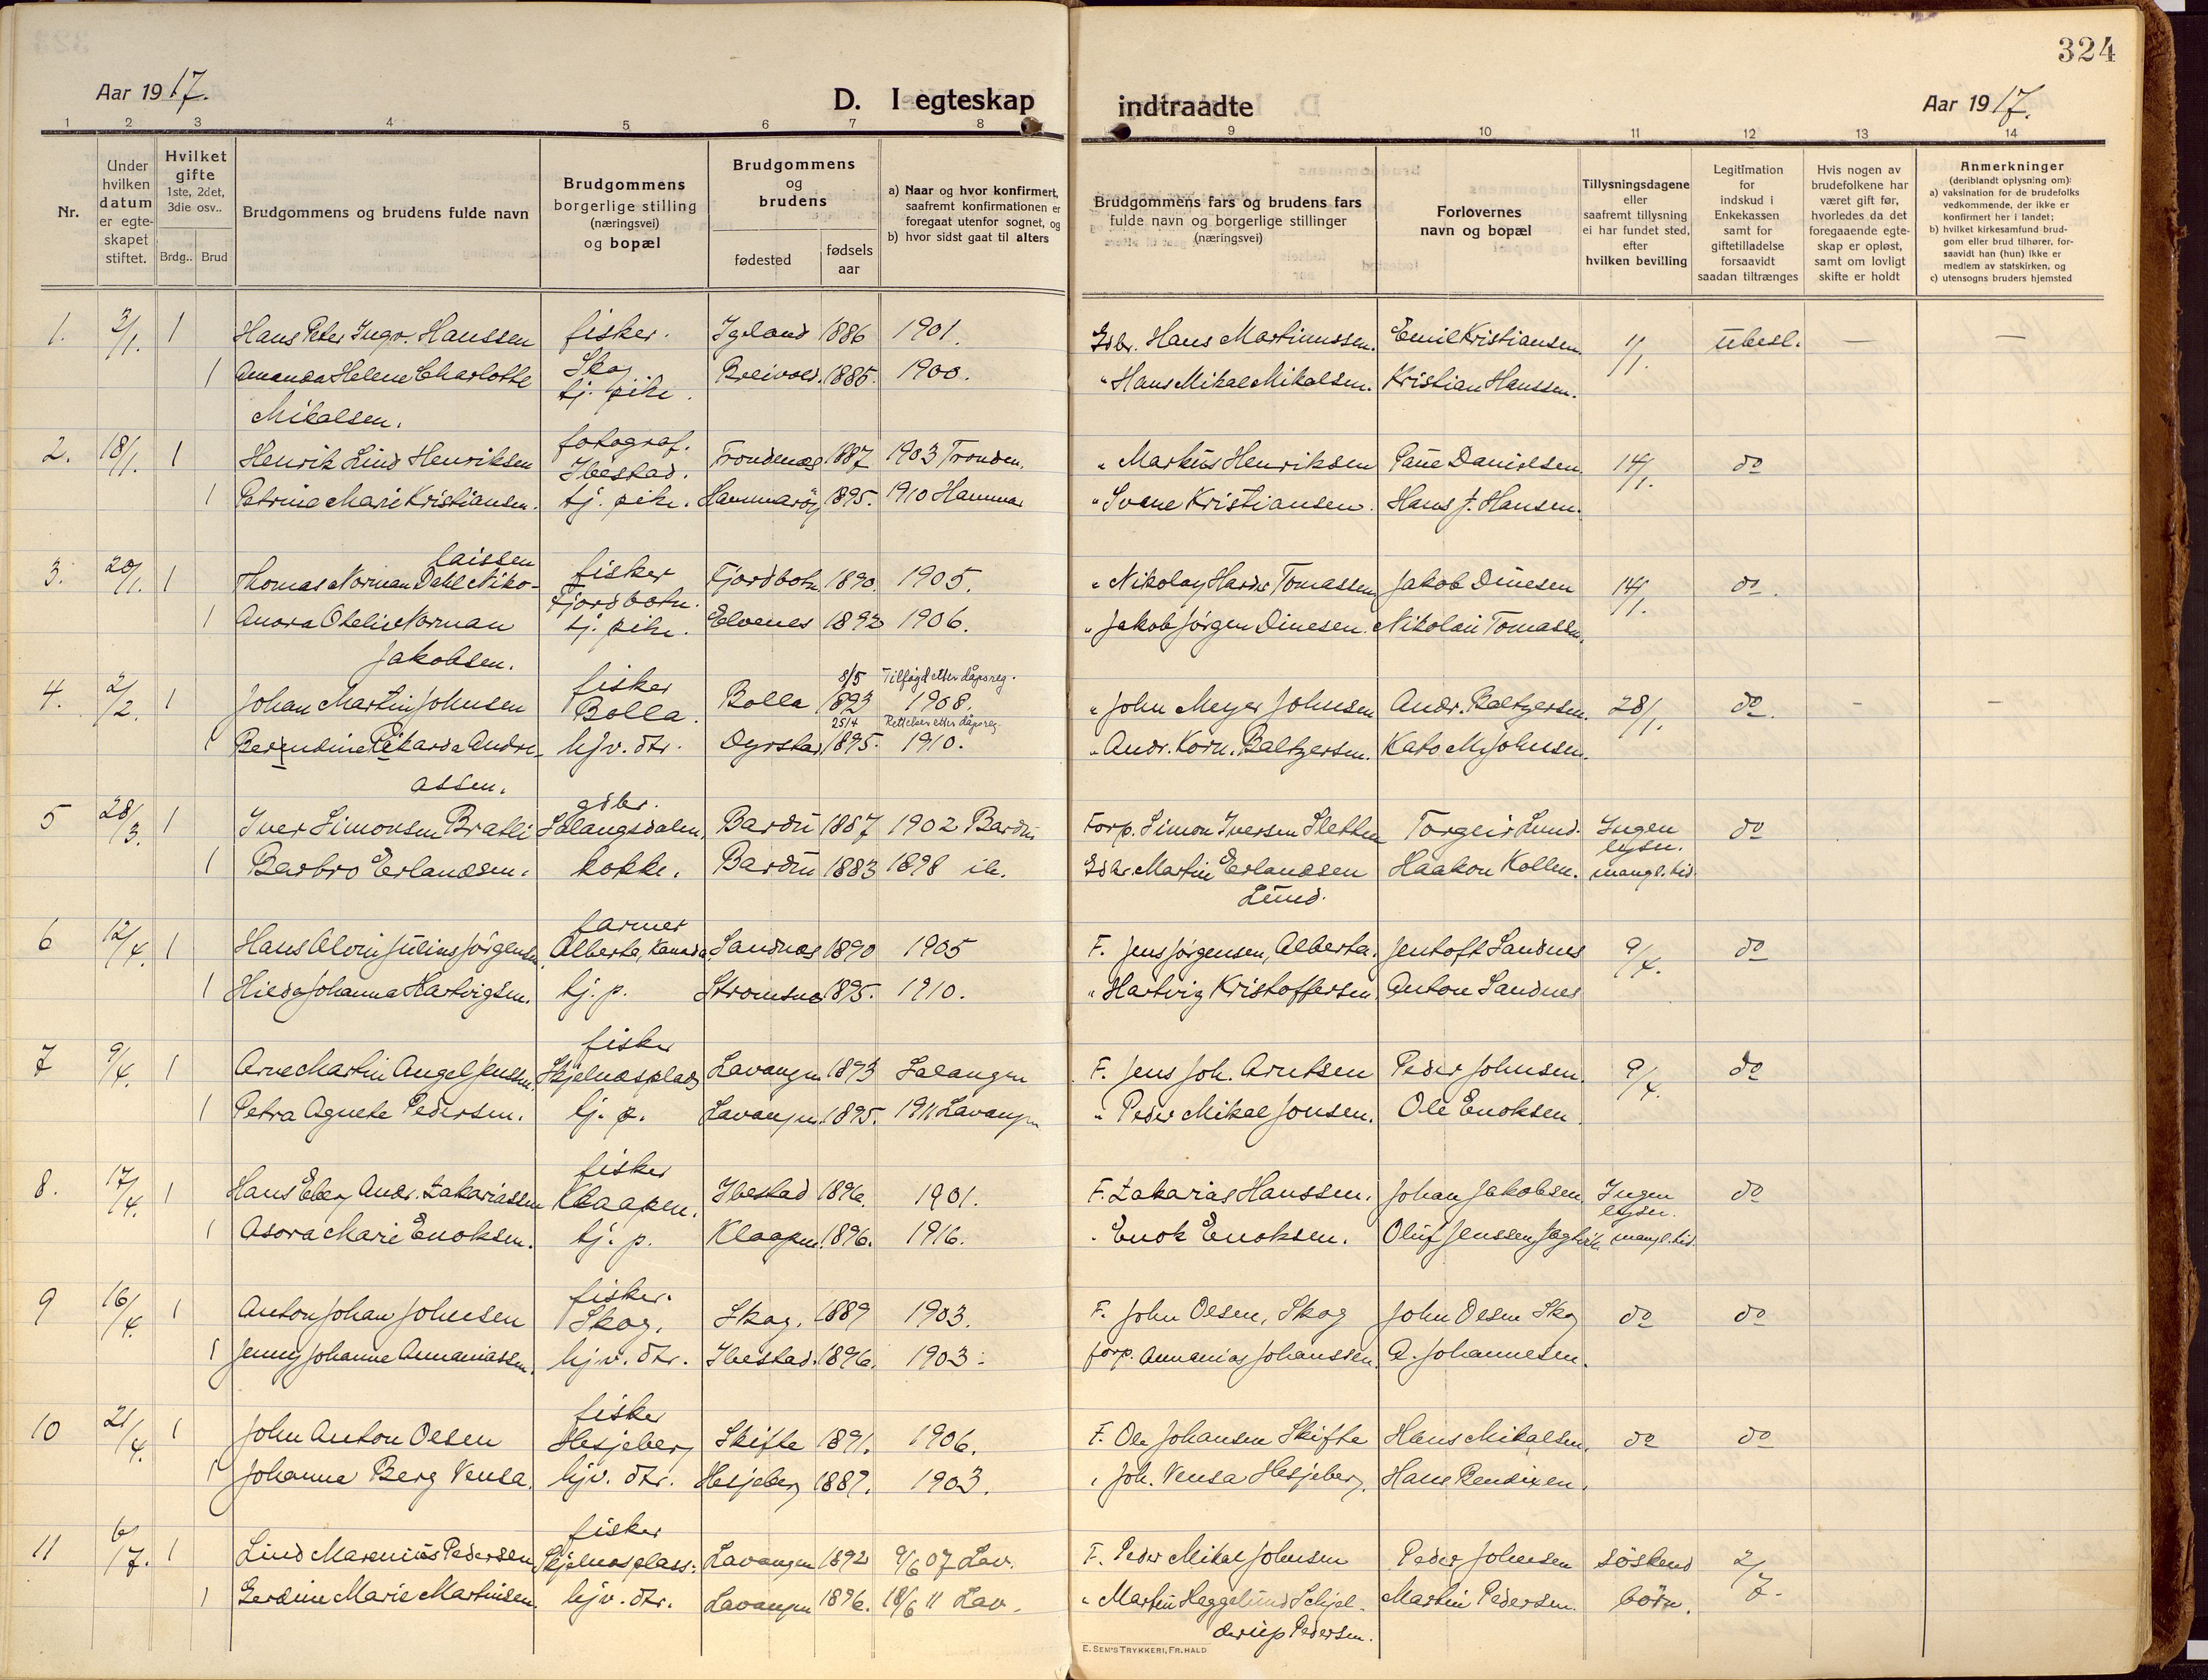 324
Aar 1917.
D. I egteskap
indtraadte
Aar 1917.
1 2 3 4 5 6 7 8 9 10 11 12 13 14
Nr.
Under hvilken datum er egte-skapet stiftet.
Hvilket gifte 1ste, 2det, 3die osv..
Brdg.. Brud
Brudgommens og brudens fulde navn
Brudgommens borgerlige stilling (næringsvei) og bopæl
Brudgommens og brudens
fødested
fødsels aar
a) Naar og hvor konfirmert, saafremt konfirmationen er foregaat utenfor sognet, og
b) hvor sidst gaat til alters
Brudgommens fars og brudens fars fulde navn og borgerlige stillinger (næringsvei)
Forlovernes navn og bopæl
Tillysningsdagene eller saafremt tillysning ei har fundet sted, efter hvilken bevilling
Legitimation for indskud i Enkekassen samt for giftetilladelse forsaavidt saadan tiltrænges
Hvis nogen av brudefolkene har været gift før, hvorledes da det foregaaende egte-skap er opløst, samt om lovligt skifte er holdt
Anmerkninger (deriblandt oplysning om):
a) vaksination for de brudefolks vedkommende, der ikke er konfirmert her i landet;
b) hvilket kirkesamfund brud-gom eller brud tilhører, for-saavidt han (hun) ikke er medlem av statskirken, og
c) utensogns bruders hjemsted
1. 2/1. 1 Hans Peter Ingv. Hanssen fisker. Skog Igeland 1886 1901. Gdbr. Hans Martinussen. Emil Kristiansen 1/1. ubesl. — —
1 Amanda Helene Charlotte Mikalsen. tj. pike. Breivold. 1885. 1900. " Hans Mikal Mikalsen. Kristian Hanssen.
2. 18/1. 1 Henrik Lind Henriksen fotograf. Ibestad. Trondenæs 1887 1903 Tronden. " Markus Henriksen Paul Danielsen 14/1. do
1 Petrine Marie Kristiansen. tj. pike. Hammaröy 1895. 1910 Hammar " Svene Kristiansen. Hans J. Hansen.
3. 20/1. 1 Thomas Norman Dahl Niko-laissen fisker Fjordbotn. Fjordbotn. 1890. 1905. " Nikolay Harder Tomassen Jakob Dinesen 14/1. do.
1 Anora Otelie Norman Jakobsen. tj. pike. Elvenes 1892 1906. " Jakob Jörgen Dinesen. Nikolai Tomassen.
4. 2/2. 1 Johan Martin Johnsen fisker Bolla. Bolla 8/5 1893 Tilføyd etter dåpsreg. 1908. " John Meyer Johnsen Andr. Baltzersen. 28/1. do. - —
1 Berendine Rikarda Andre-assen. hjv. dtr. Dyrstad 25/4 1895. Rettelser etter dåpsreg. 1910. " Andr. Korn. Baltzersen. Kato M. Johnsen.
5 28/3. 1 Iver Simonsen Bratli gdbr. Salangsdalen. Bardu 1887 1902 Bardu Forp. Simon Iversen Sletten Torgeir Lund. Ingen lysn. mangl. tid. do
1 Barbro Erlandsen. kokke. Bardu 1883 1898 ib. Gdbr. Martin Erlandsen Lund. Haakon Kollen.
6 12/4. 1 Hans Alvin Julius Jörgensen farmer Alberta, Kanada Sandnes 1890 1905 F. Jens Jörgensen, Alberta. Jentoft Sandnes 9/4. do
1 Hilda Johanna Hartvigsen. tj. p. Strømsnes 1895. 1910. " Hartvig Kristoffersen Anton Sandnes
7 9/4. 1 Arne Martin Angel Jensen. fisker Skjelnesplads Lavangen 1893 Salangen F. Jens Joh. Arntsen Peder Johnsen. 9/4. do
1 Petra Agnete Pedersen. tj. p. Lavangen. 1895. 1911 Lavangen " Peder Mikal Jonsen. Ole Enoksen.
8. 17/4. 1 Hans Eberg Andr. Zakariassen fisker Klaapen. Ibestad 1896. 1901. F. Zakarias Hanssen. Johan Jakobsen Ingen lysn. mangl. tid. do
1 Asora Marie Enoksen. tj. p. Klaapen. 1896. 1916. " Enok Enoksen. Oluf Jenssen
9 16/4. 1 Anton Johan Johnsen fisker. Skog. Skog. 1889 1903. F. John Olsen, Skog John Olsen Skog do do
1 Jenny Johanne Annaniassen. hjv. dtr. Ibestad. 1896. 1903. forp. Annanias Johanssen A. Johannesen.
10 21/4. 1 John Anton Olsen fisker Hesjeberg Skifte 1891. 1906. F. Ole Johansen Skifte Hans Mikalsen. do do
1 Johanna Berg Vensa. hjv. dtr. Hesjeberg 1887. 1903. " Joh. Vensa Hesjeberg. Hans Bendixen.
11 6/7. 1 Lind Marenius Pedersen fisker Skjelnesplass. Lavangen 1892 9/6 07 Lav. F. Peder Mikal Johnsen Peder Johnsen söskend börn. 2/7.
1 Gerdine Marie Martinsen. hjv. dtr. Lavangen 1896. 18/6 11 Lav. " Martin Heggelund Schjel-derup Pedersen. Martin Pedersen.
E. SEM'S TRYKKERI, FR.HALD